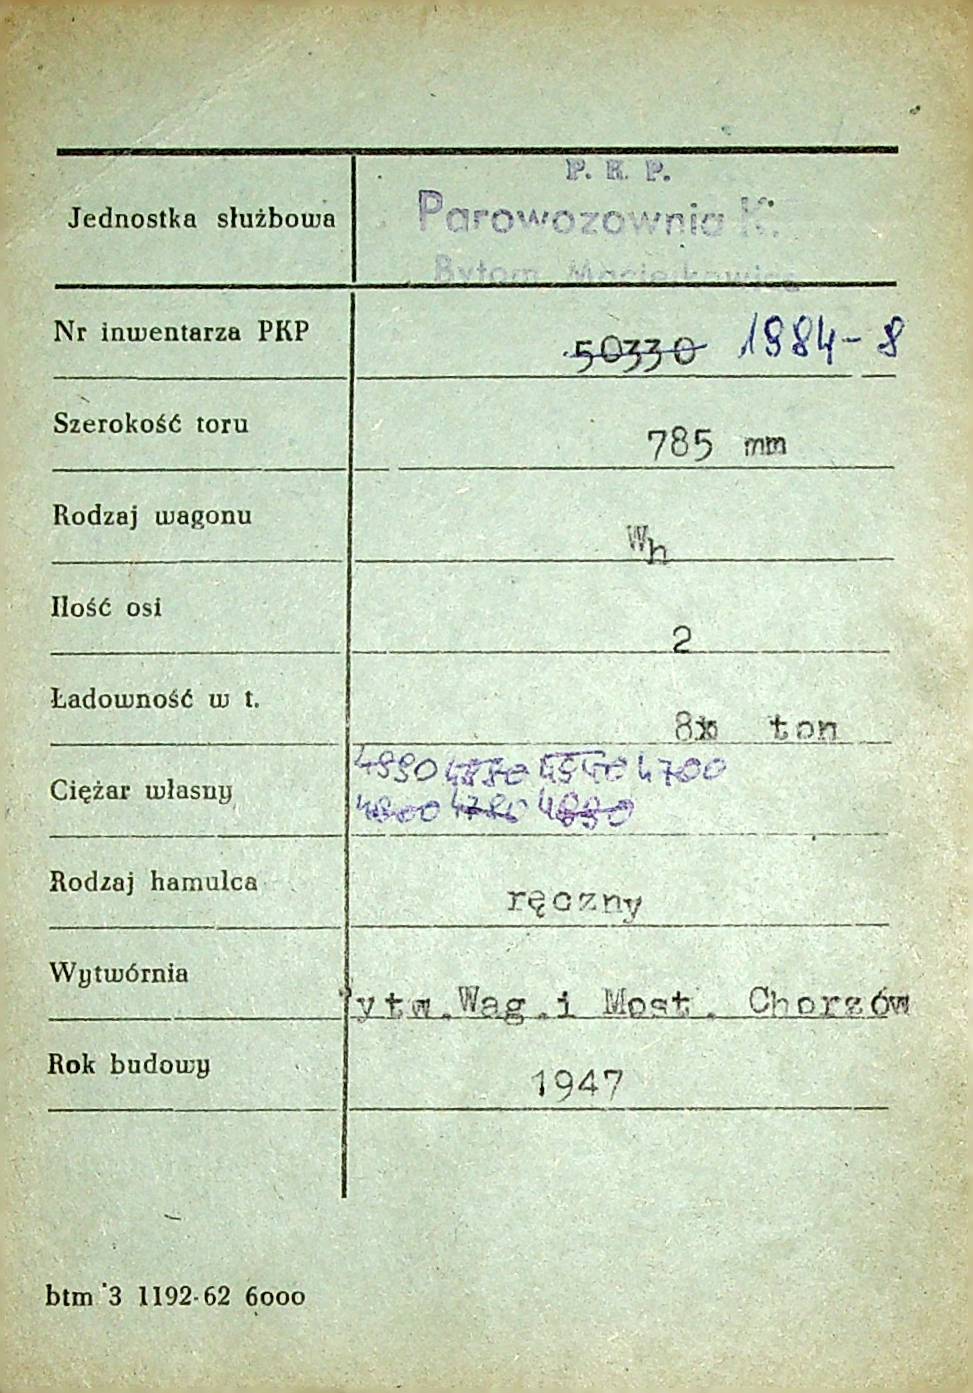 P. K. P.
Jednostka służbowa Parowozownia K.
Bytom Maciejkowice
Nr inwentarza PKP 50330 1984-8
Szerokość toru 785 mm
Rodzaj wagonu Wh
Ilość osi 2
Ładowność w t. 8 ton
4990 4700
Ciężar własny 4800 4780 4890
Rodzaj hamulca ręczny
Wytwórnia Wytw.Wag.i Most. Chorzów
Rok budowy 1947
btm 3 1192-62 6000